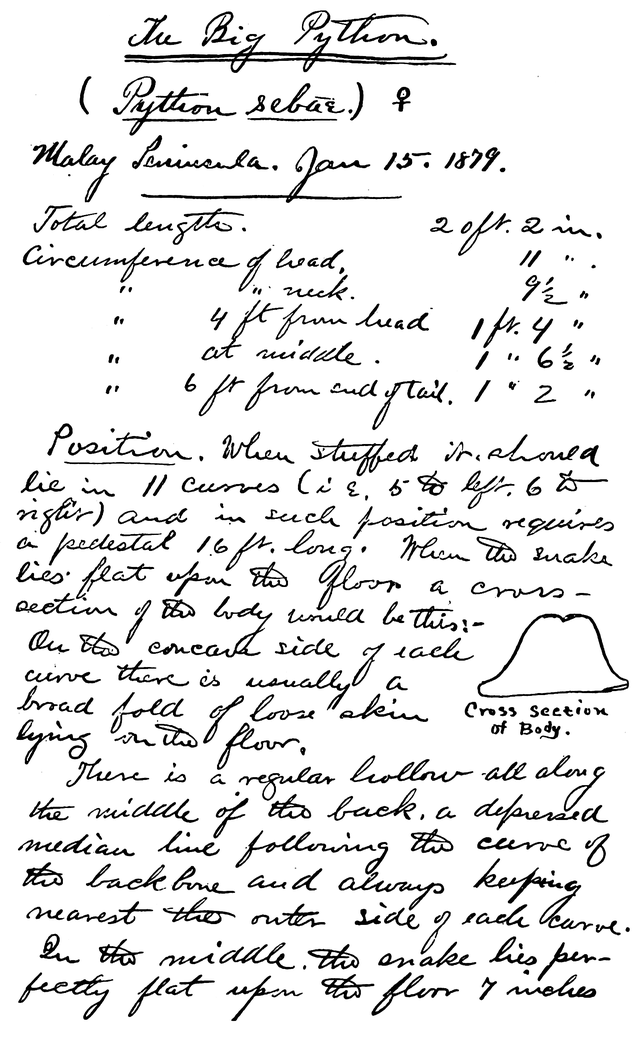 The Big Python.
(Python sebae.) ♀
Malay Peninsula. Jan 15. 1879.
Total length. 20 ft. 2 in.
Circumference of head, 11 " .
" " neck. 9½ "
" 4 ft from head 1 ft. 4 "
" at middle. 1 " 6½ "
" 6 ft from end of tail. 1 " 2 "
Position. When stuffed it should
lie in 11 curves (i e, 5 to left. 6 to
right) and in such position requires
a pedestal 16 ft. long. When the snake
lies flat upon the floor a cross-
section of the body would be this:-
On the concave side of each
curve there is usually a
broad fold of loose skin
lying on the floor.
Cross Section
of Body.
There is a regular hollow all along
the middle of the back. a depressed
median line following the curve of
the backbone and always keeping
nearest the outer side of each curve.
In the middle. the snake lies per-
fectly flat upon the floor 7 inches